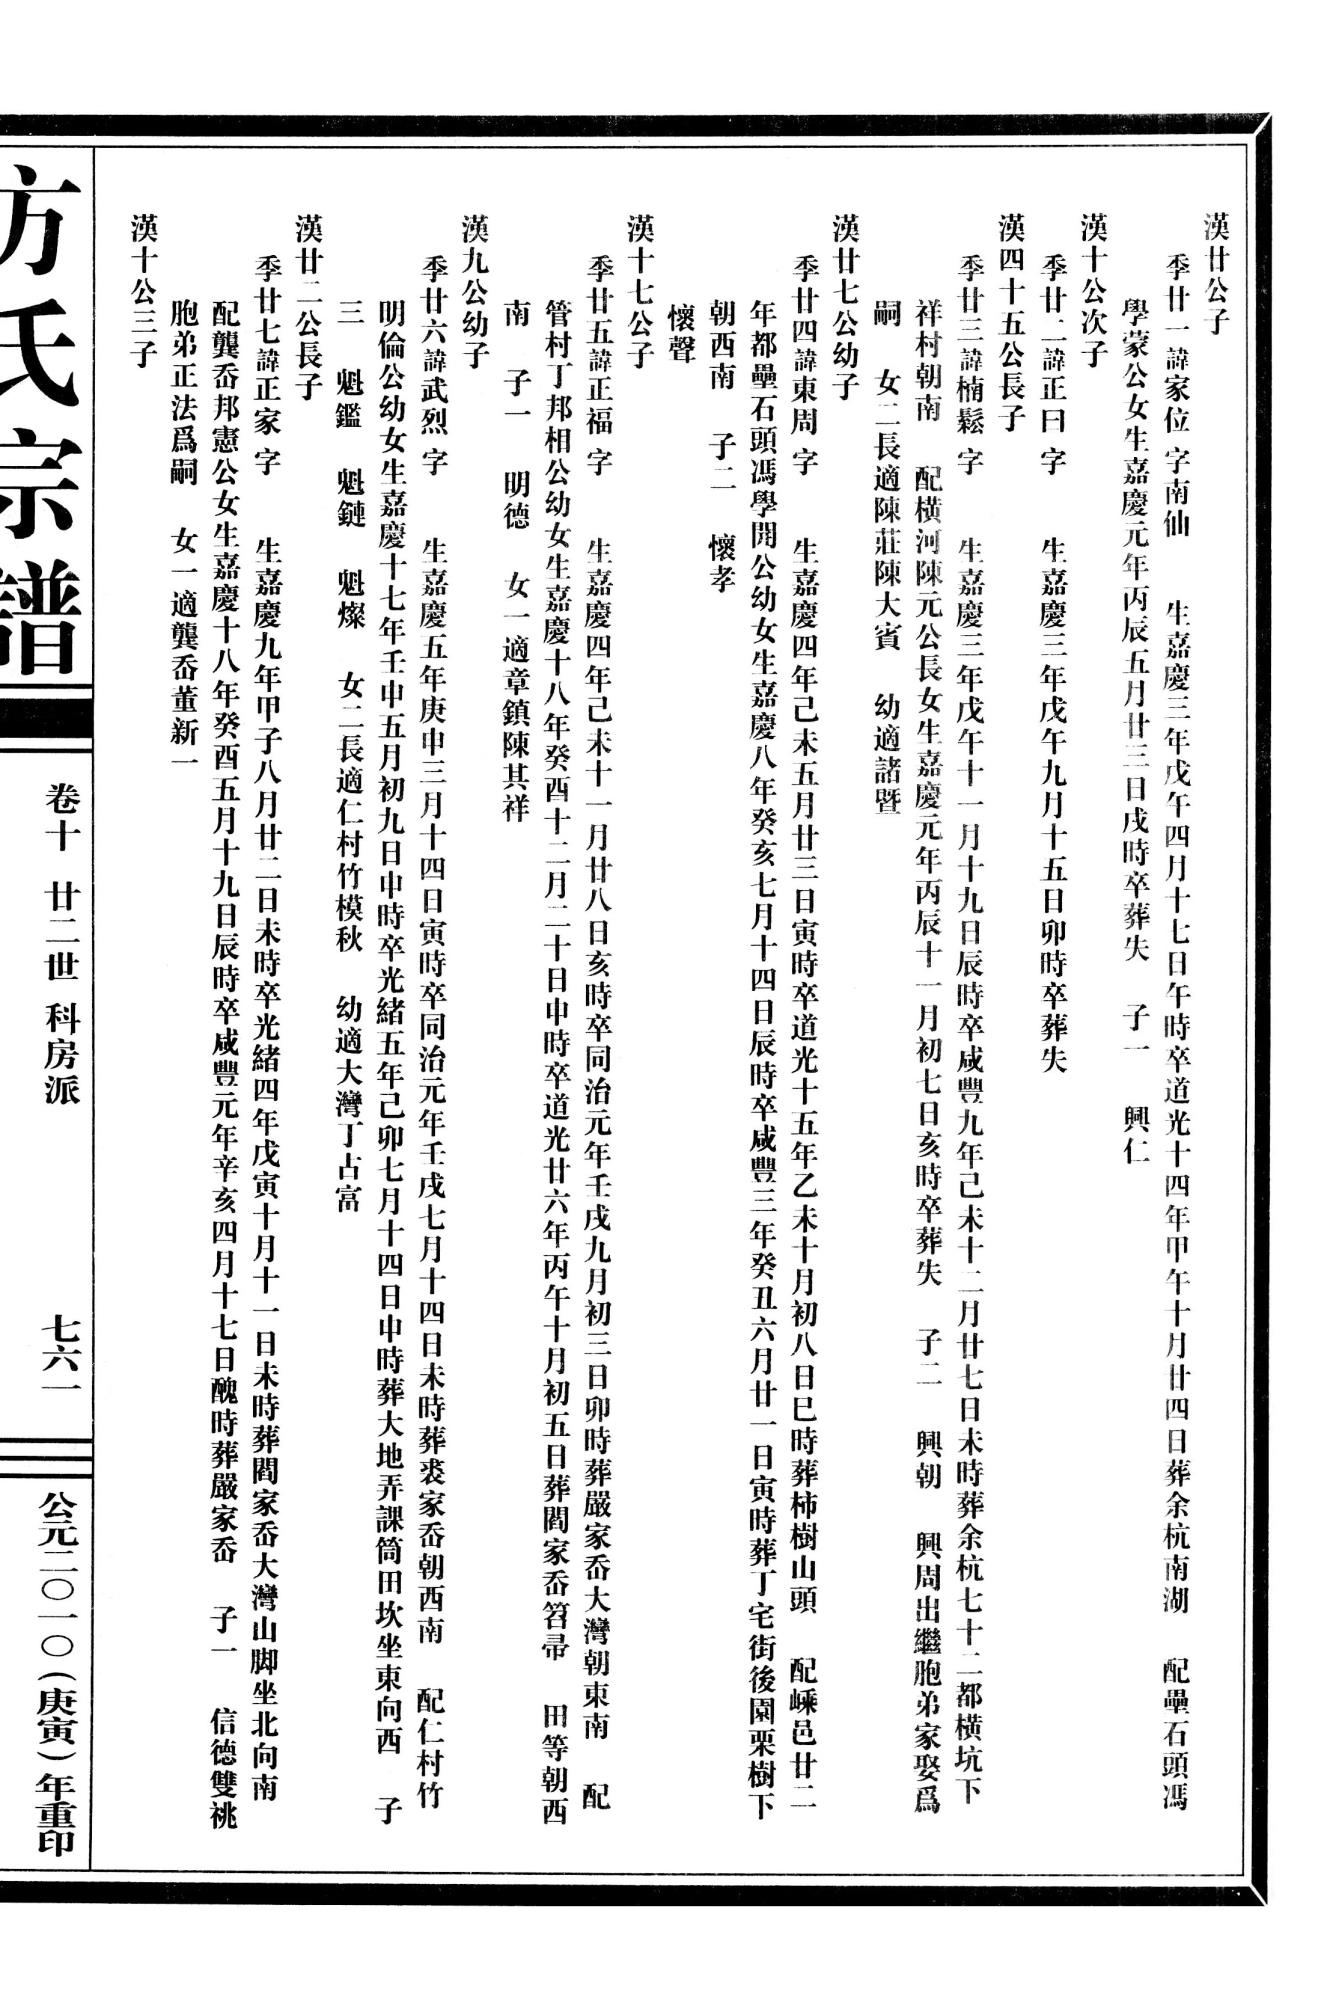 漢廿公子
季廿一諱家位 字南仙 生嘉慶三年戊午四月十七日午時卒道光十四年甲午十月廿四日葬余杭南湖 配壘石頭馮
學蒙公女生嘉慶元年丙辰五月廿三日戌時卒葬失 子一 興仁
漢十公次子
季廿二諱正曰 字 生嘉慶三年戊午九月十五日卯時卒葬失
漢四十五公長子
季廿三諱楠鬆 字 生嘉慶三年戊午十一月十九日辰時卒咸豐九年己未十二月廿七日未時葬余杭七十二都橫坑下
祥村朝南 配橫河陳元公長女生嘉慶元年丙辰十一月初七日亥時卒葬失 子二 興朝 興周出繼胞弟家娶爲
嗣 女二長適陳莊陳大賓 幼適諸暨
漢廿七公幼子
季廿四諱東周 字 生嘉慶四年己未五月廿三日寅時卒道光十五年乙未十月初八日巳時葬柿樹山頭 配嵊邑廿二
年都壘石頭馮學閔公幼女生嘉慶八年癸亥七月十四日辰時卒咸豐三年癸丑六月廿一日寅時葬丁宅街後園栗樹下
朝西南 子二 懷孝
懷聲
漢十七公子
季廿五諱正福 字 生嘉慶四年己未十一月廿八日亥時卒同治元年壬戌九月初三日卯時葬嚴家岙大灣朝東南 配
管村丁邦相公幼女生嘉慶十八年癸酉十二月二十日申時卒道光廿六年丙午十月初五日葬閻家岙笤帚 田等朝西
南 子一 明德 女一適章鎮陳其祥
漢九公幼子
季廿六諱武烈 字 生嘉慶五年庚申三月十四日寅時卒同治元年壬戌七月十四日未時葬裘家岙朝西南 配仁村竹
明倫公幼女生嘉慶十七年壬申五月初九日申時卒光緒五年己卯七月十四日申時葬大地弄課筒田坎坐東向西 子
三 魁鑑 魁鏈 魁燦 女二長適仁村竹模秋 幼適大灣丁占富
漢廿二公長子
季廿七諱正家 字 生嘉慶九年甲子八月廿二日未時卒光緒四年戊寅十月十一日未時葬閻家岙大灣山脚坐北向南
配龔岙邦憲公女生嘉慶十八年癸酉五月十九日辰時卒咸豐元年辛亥四月十七日醜時葬嚴家岙 子一 信德雙祧
胞弟正法爲嗣 女一適龔岙董新一
漢十公三子
方氏宗譜
卷十 廿二世 科房派
七六一
公元二〇一〇（庚寅）年重印